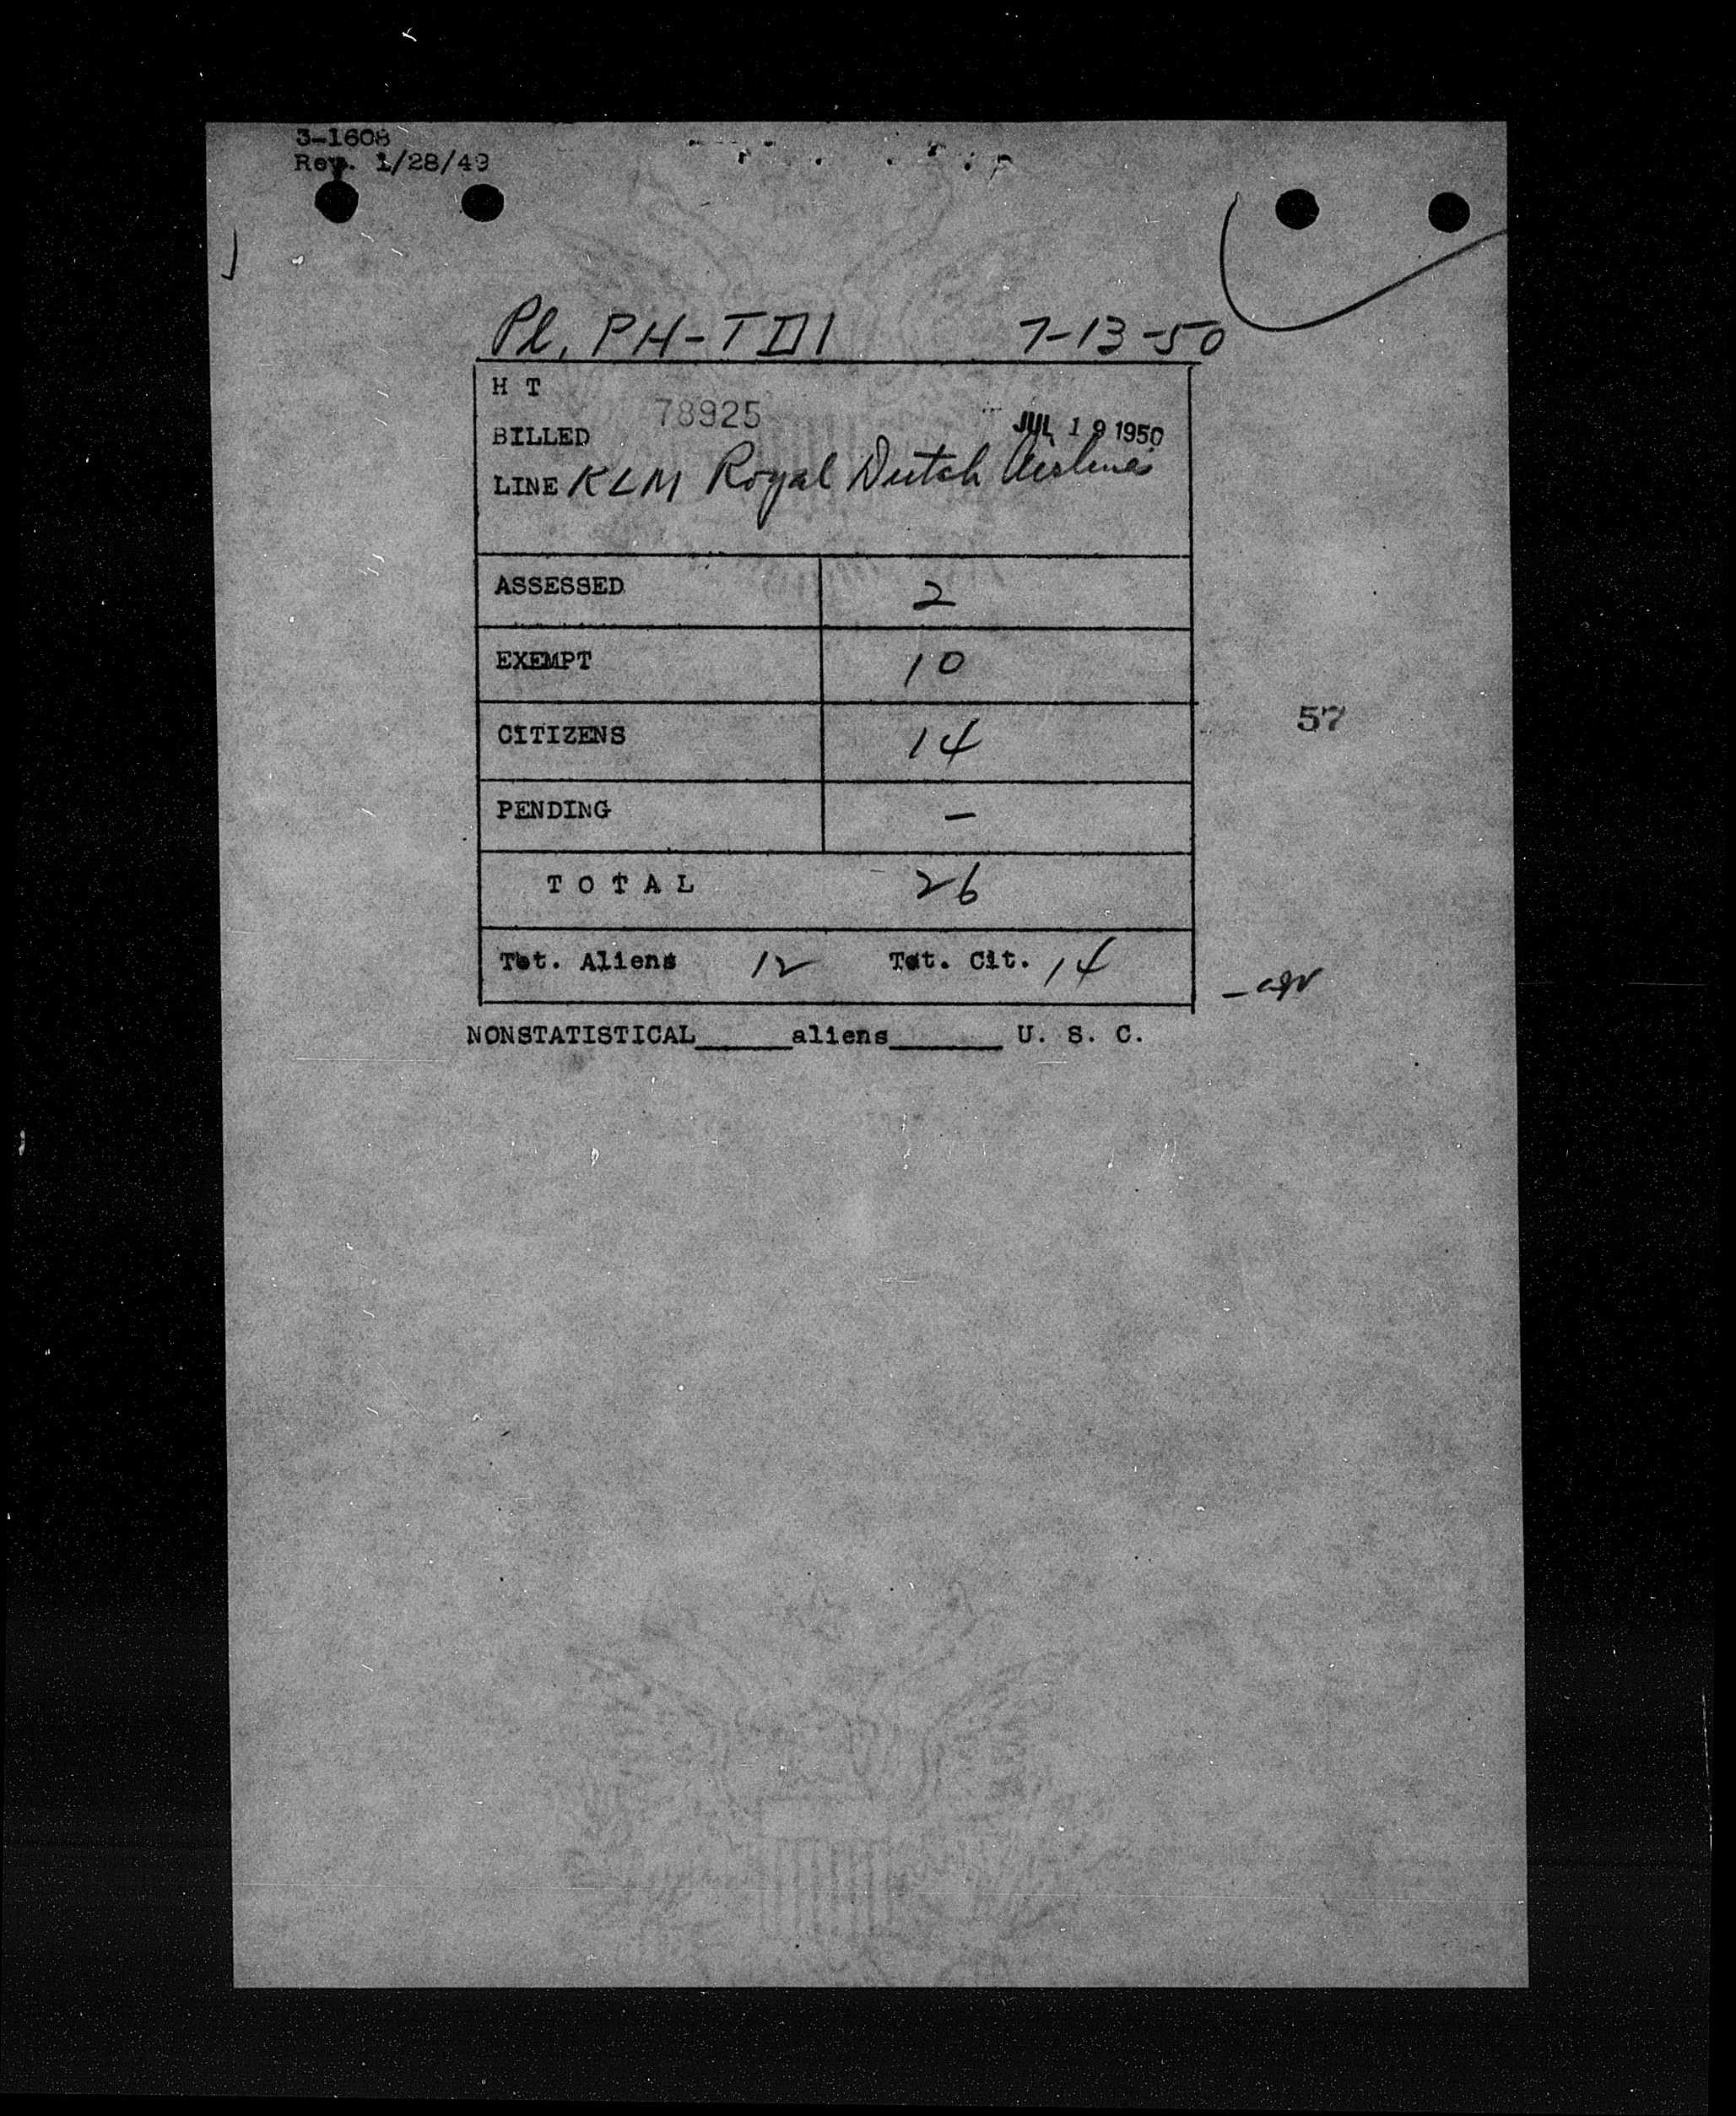 3-1608
Rev. 1/28/49
Pl. PH-TDI 7-13-50
H T
78925
BILLED JUL 19 1950
LINE KLM Royal Dutch Airlines
ASSESSED 2
EXEMPT 10
CITIZENS 14
57
PENDING -
T O T A L 26
Tot. Aliens 12 Tot. Cit. 14
NONSTATISTICAL______aliens_______ U. S. C.